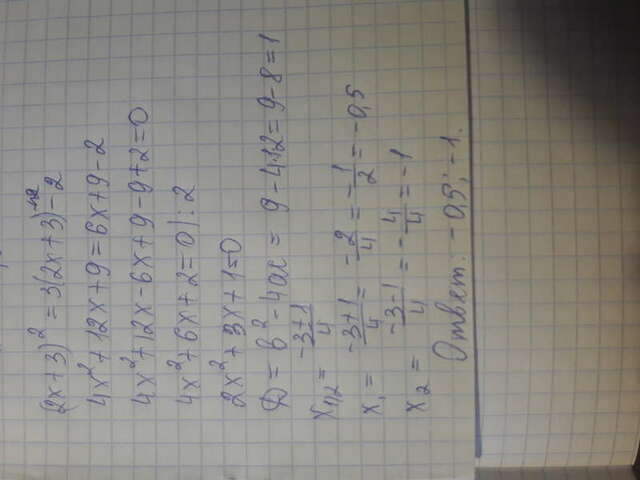 (2x+3)² = 3(2x+3) - 2
4x² + 12x + 9 = 6x + 9 - 2
4x² + 12x - 6x + 9 - 9 + 2 = 0
4x² + 6x + 2 = 0 | : 2
2x² + 3x + 1 = 0
D = b² - 4ac = 9 - 4·1·2 = 9 - 8 = 1
x₁/₂ = (-3±1)/4
x₁ = (-3+1)/4 = -2/4 = -1/2 = -0,5
x₂ = (-3-1)/4 = -4/4 = -1
Ответ: -0,5; -1.